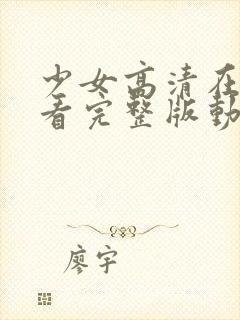 少女高清在
看完整版動
廖宇